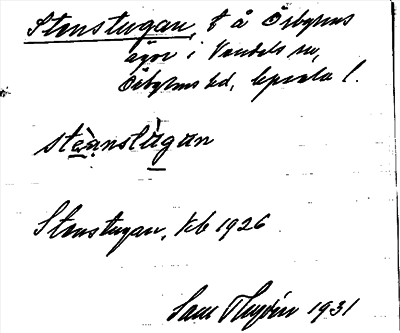 Stenstugan, t å Örbyhus
ägor i Vendels sn,
Örbyhus hd, Upsala l.
stèanstùgan
Stenstugan, kb 1926
Sam 1931